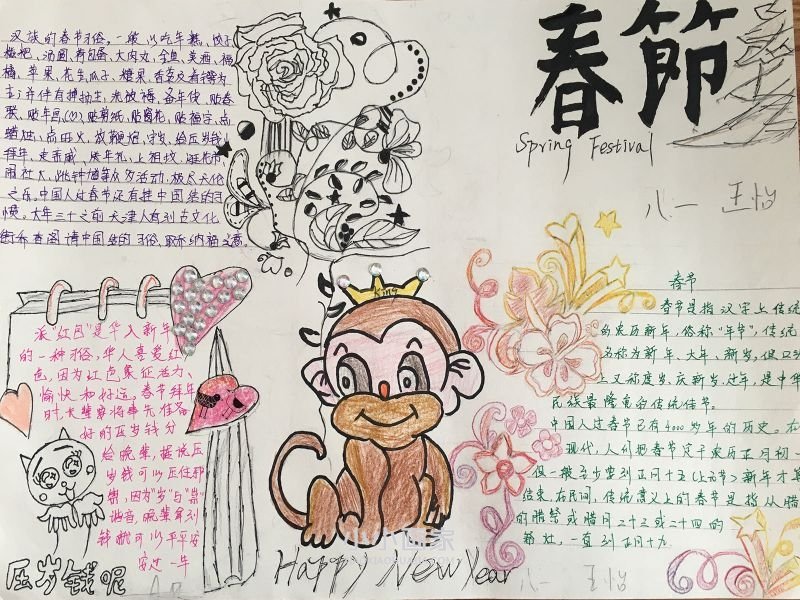 汉族的春节习俗，一般以吃年糕、饺子
糍粑、汤圆、荷包蛋、大肉丸、全鱼、美酒、福
橘、苹果、花生瓜子、糖果、香茗及肴馔为
主；并伴有掸扬尘、洗被褥、备年货、贴春
联、贴年画、贴剪纸、贴窗花、贴福字、点
蜡烛、点旺火、放鞭炮、守岁、给压岁钱、
拜年、走亲戚、送年礼、上祖坟、逛花市、
闹社火、跳钟馗等众多活动，极尽天伦
之乐。中国人过春节还有挂中国结的习
惯，大年三十之前天津人有到古文化
街乔香阁请中国结的习俗，取意纳福之意。
春節
Spring Festival
八一 王怡
派"红包"是华人新年
的一种习俗，华人喜爱红
色，因为红色象征活力、
愉快和好运。春节拜年
时，长辈要将事先准备
好的压岁钱分
给晚辈，据说压
岁钱可以压住邪
祟，因为"岁"与"祟"
谐音，晚辈得到
钱就可以平平安
安过一年
压岁钱呢
King
Happy New Year
春节
春节是指汉字上传统
的农历新年，俗称"年节"，传统
名称为新年、大年、新岁，但口头
上又称度岁、庆新岁、过年，是中华
民族最隆重的传统佳节。
中国人过春节已有4000多年的历史。在
现代，人们把春节定于农历正月初一
但一般至少要到正月十五（上元节）新年才算
结束，在民间，传统意义上的春节是指从腊月
的腊祭或腊月二十三或二十四的
祭灶，一直到正月十九
八一 王怡
小小画家